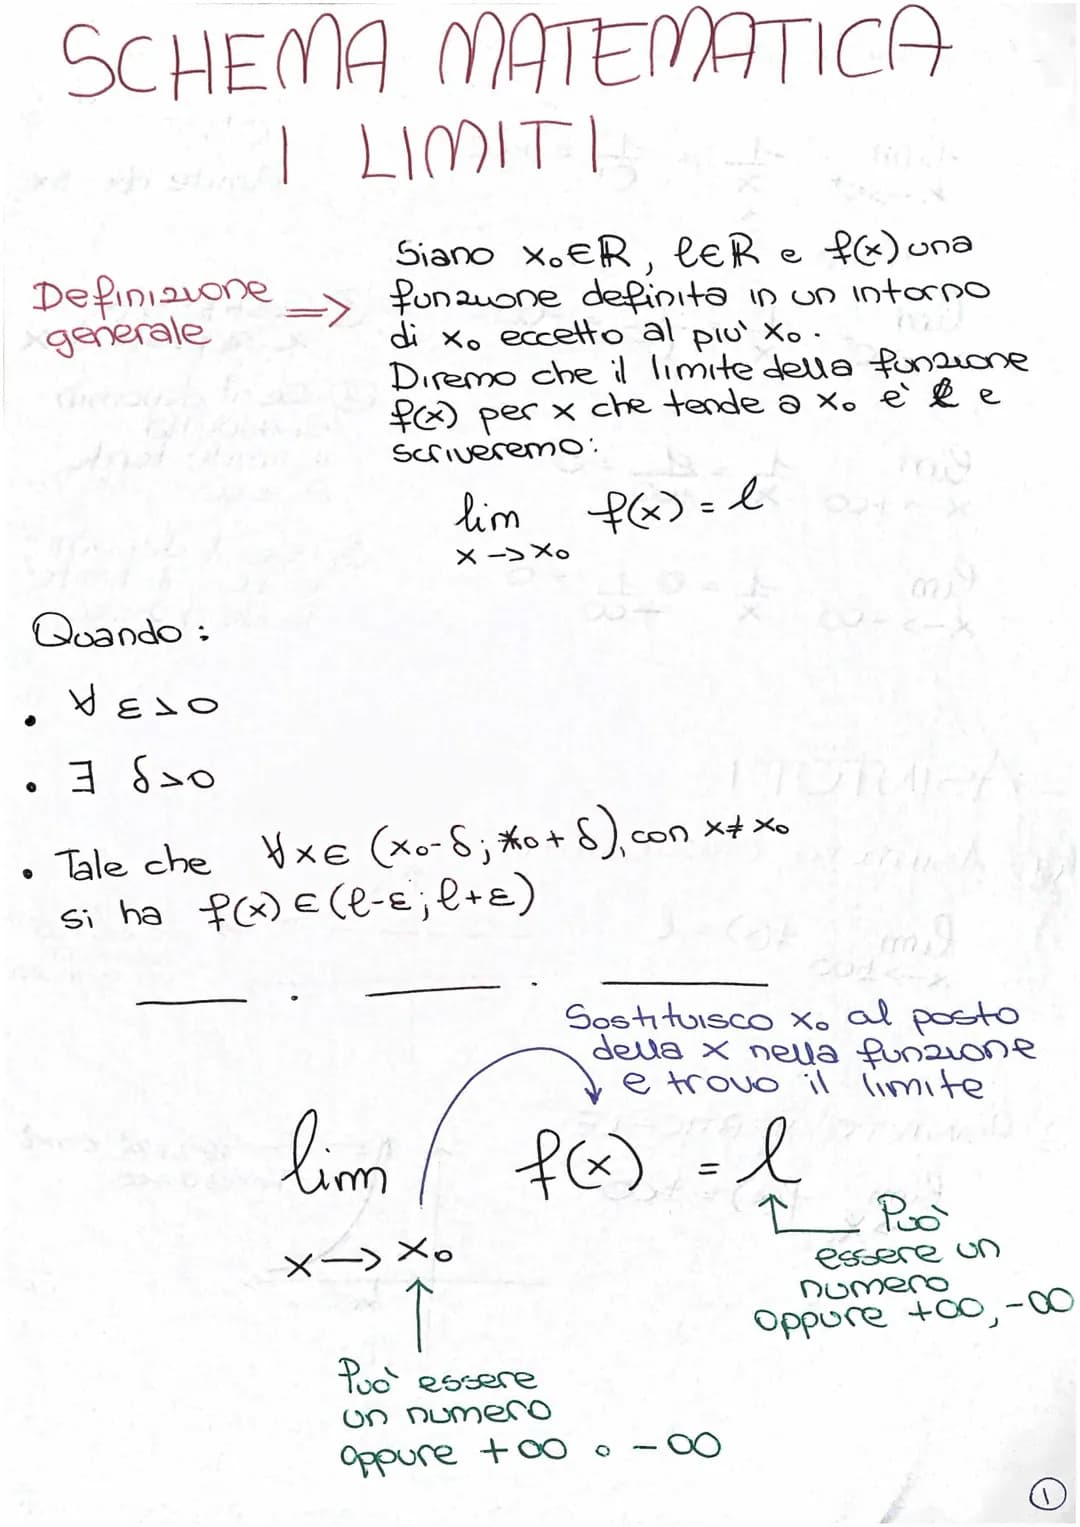 SCHEMA MATEMATICA
I LIMITI
Definizione
generale
=>
Siano x₀∈ℝ, ℓ∈ℝ e f(x) una
funzione definita in un intorno
di x₀ eccetto al piu' x₀.
Diremo che il limite della funzione
f(x) per x che tende a x₀ e' ℓ e
scriveremo:
lim f(x) = ℓ
x -> x₀
Quando:
• ∀ ε>0
• ∃ δ>0
• Tale che ∀x∈ (x₀-δ; x₀+δ), con x≠x₀
si ha f(x)∈(ℓ-ε; ℓ+ε)
Sostituisco x₀ al posto
della x nella funzione
e trovo il limite
lim f(x) = ℓ
x -> x₀
Può
essere un
numero
oppure +∞, -∞
Puo' essere
un numero
oppure +∞ o -∞
1